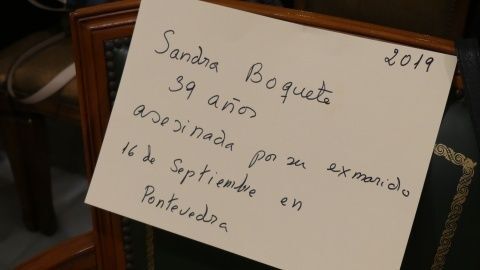 2019
Sandra Boquete
39 años
asesinada por su exmarido
16 de Septiembre en
Pontevedra